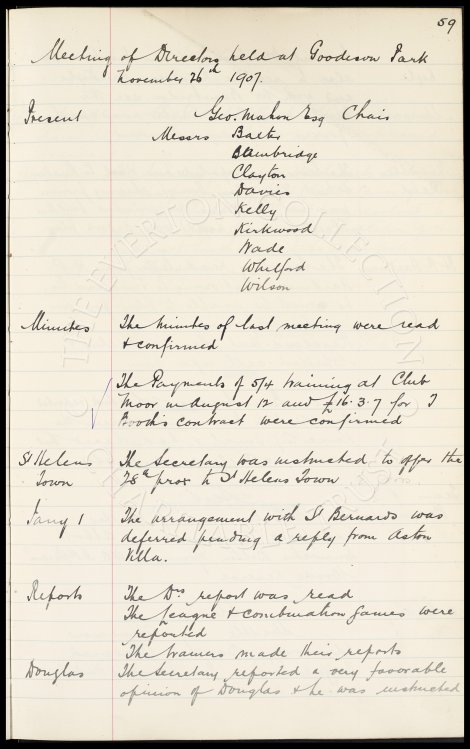 59
Meeting of Directors held at Goodison Park
November 26th 1907.
Present Geo. Mahon Esq Chair
Messrs Baxter
Bainbridge
Clayton
Davies
Kelly
Kirkwood
Wade
Whitford
Wilson
Minutes The Minutes of last meeting were read
& confirmed
The Payments of 5/4 training at Club
Moor in August 12 and £16.3.7 for T
Booth's contract were confirmed
St Helens The Secretary was instructed to offer the
Town 28th prox to St Helens Town
Jany 1 The arrangement with St Bernards was
deferred pending a reply from Aston
Villa.
Reports The Drs report was read
The League & Combination games were
reported
The trainers made their reports
Douglas The Secretary reported a very favorable
opinion of Douglas & he was instructed
THE EVERTON COLLECTION